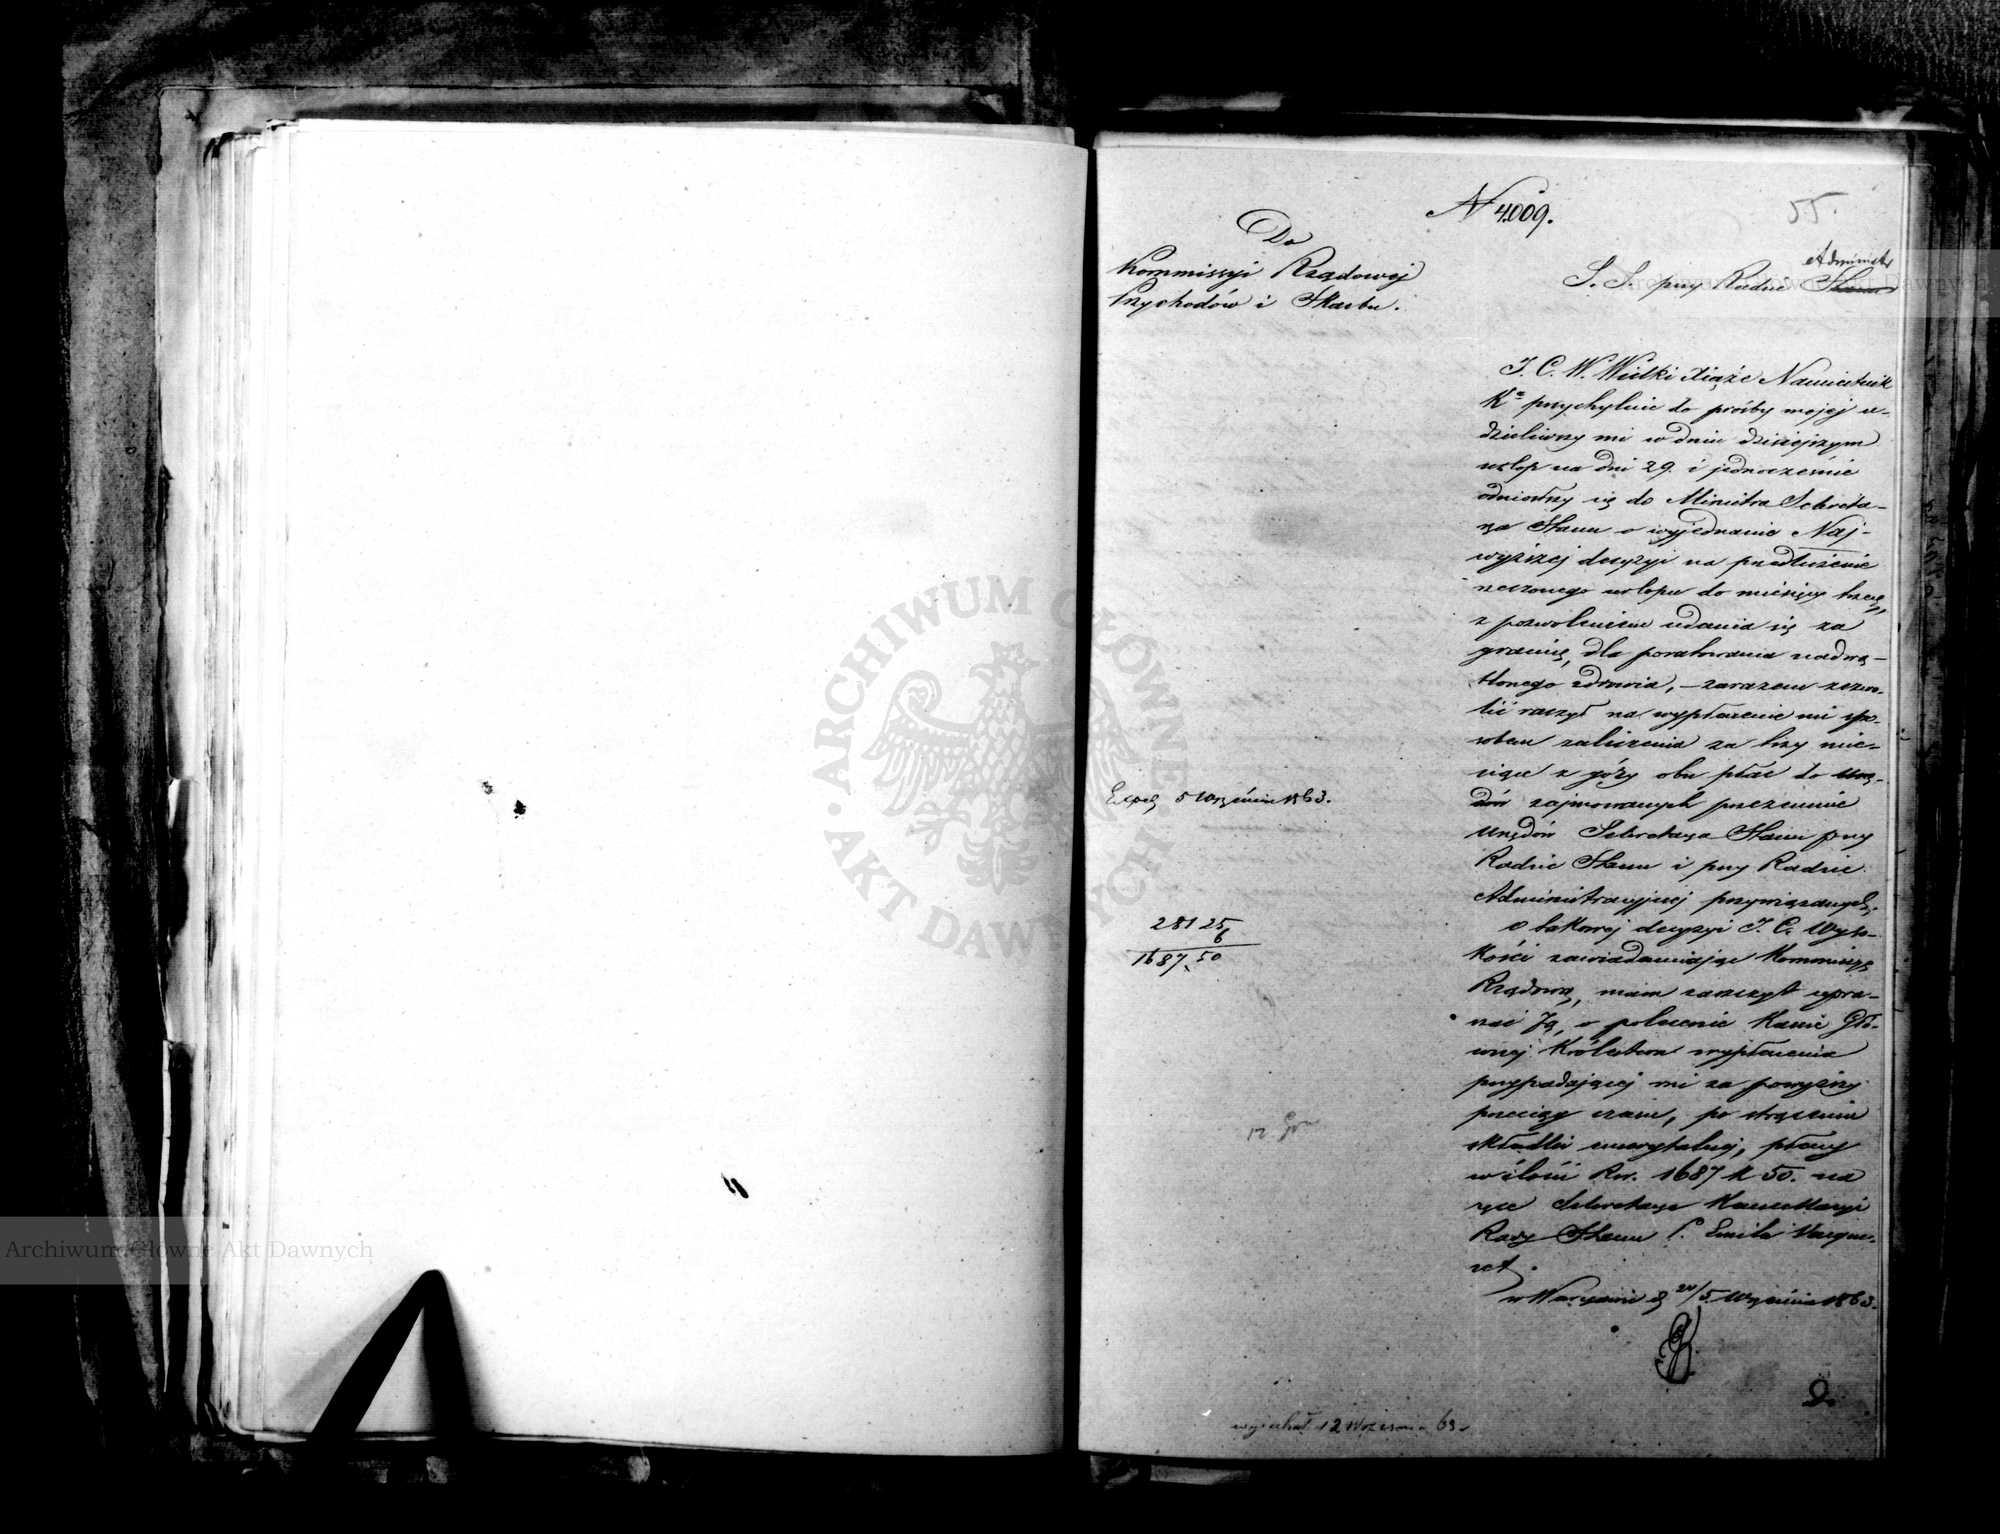 N 4009.
55.
Do
Kommissyi Rządowej
Przychodów i Skarbu.
Administr
S. S. przy Radzie Stanu
J. C. W. Wielki Xiąże Namiestnik
Kr przychylnie do prośby mojej u-
dzieliwszy mi w dniu dzisiejszym
urlop na dni 29. i jednocześnie
odniosłszy się do Ministra Sekreta-
rza Stanu o wyjednanie Naj-
wyższej decyzyi na przedłużenie
rzeczonego urlopu do miesięcy trzech,
z pozwoleniem udania się za
granicę, dla poratowania nadwą-
tlonego zdrowia, – zarazem zezwo-
lić raczył na wypłacenie mi spo-
sobem zaliczenia za trzy mie-
siące z góry obu płac do Urzę-
dów zajmowanych przezemnie
Urzędów Sekretarza Stanu przy
Radzie Stanu i przy Radzie
Administracyjnej przywiązanych;
o takowej decyzyi J. C. Wyso-
kości zawiadamiając Kommissyę
Rządową, mam zaszczyt upra-
szać Ją, o polecenie Kassie Głó-
wnej Królestwa wypłacenia
przypadającej mi za powyższy
przeciąg czasu, po strąceniu
składki emerytalnej, płacy
w ilości Rsr. 1687 k 50. na
ręce Sekretarza Kancellaryi
Rady Stanu P. Emila
w Warszawie d 24/5 Września 1863.
Exped 5 Września 1863.
281 25
6
1687, 50
12
wyjechał 12 Września 63.
Archiwum Główne Akt Dawnych
Archiwum Główne Akt Dawnych
· ARCHIWUM GŁÓWNE · AKT DAWNYCH